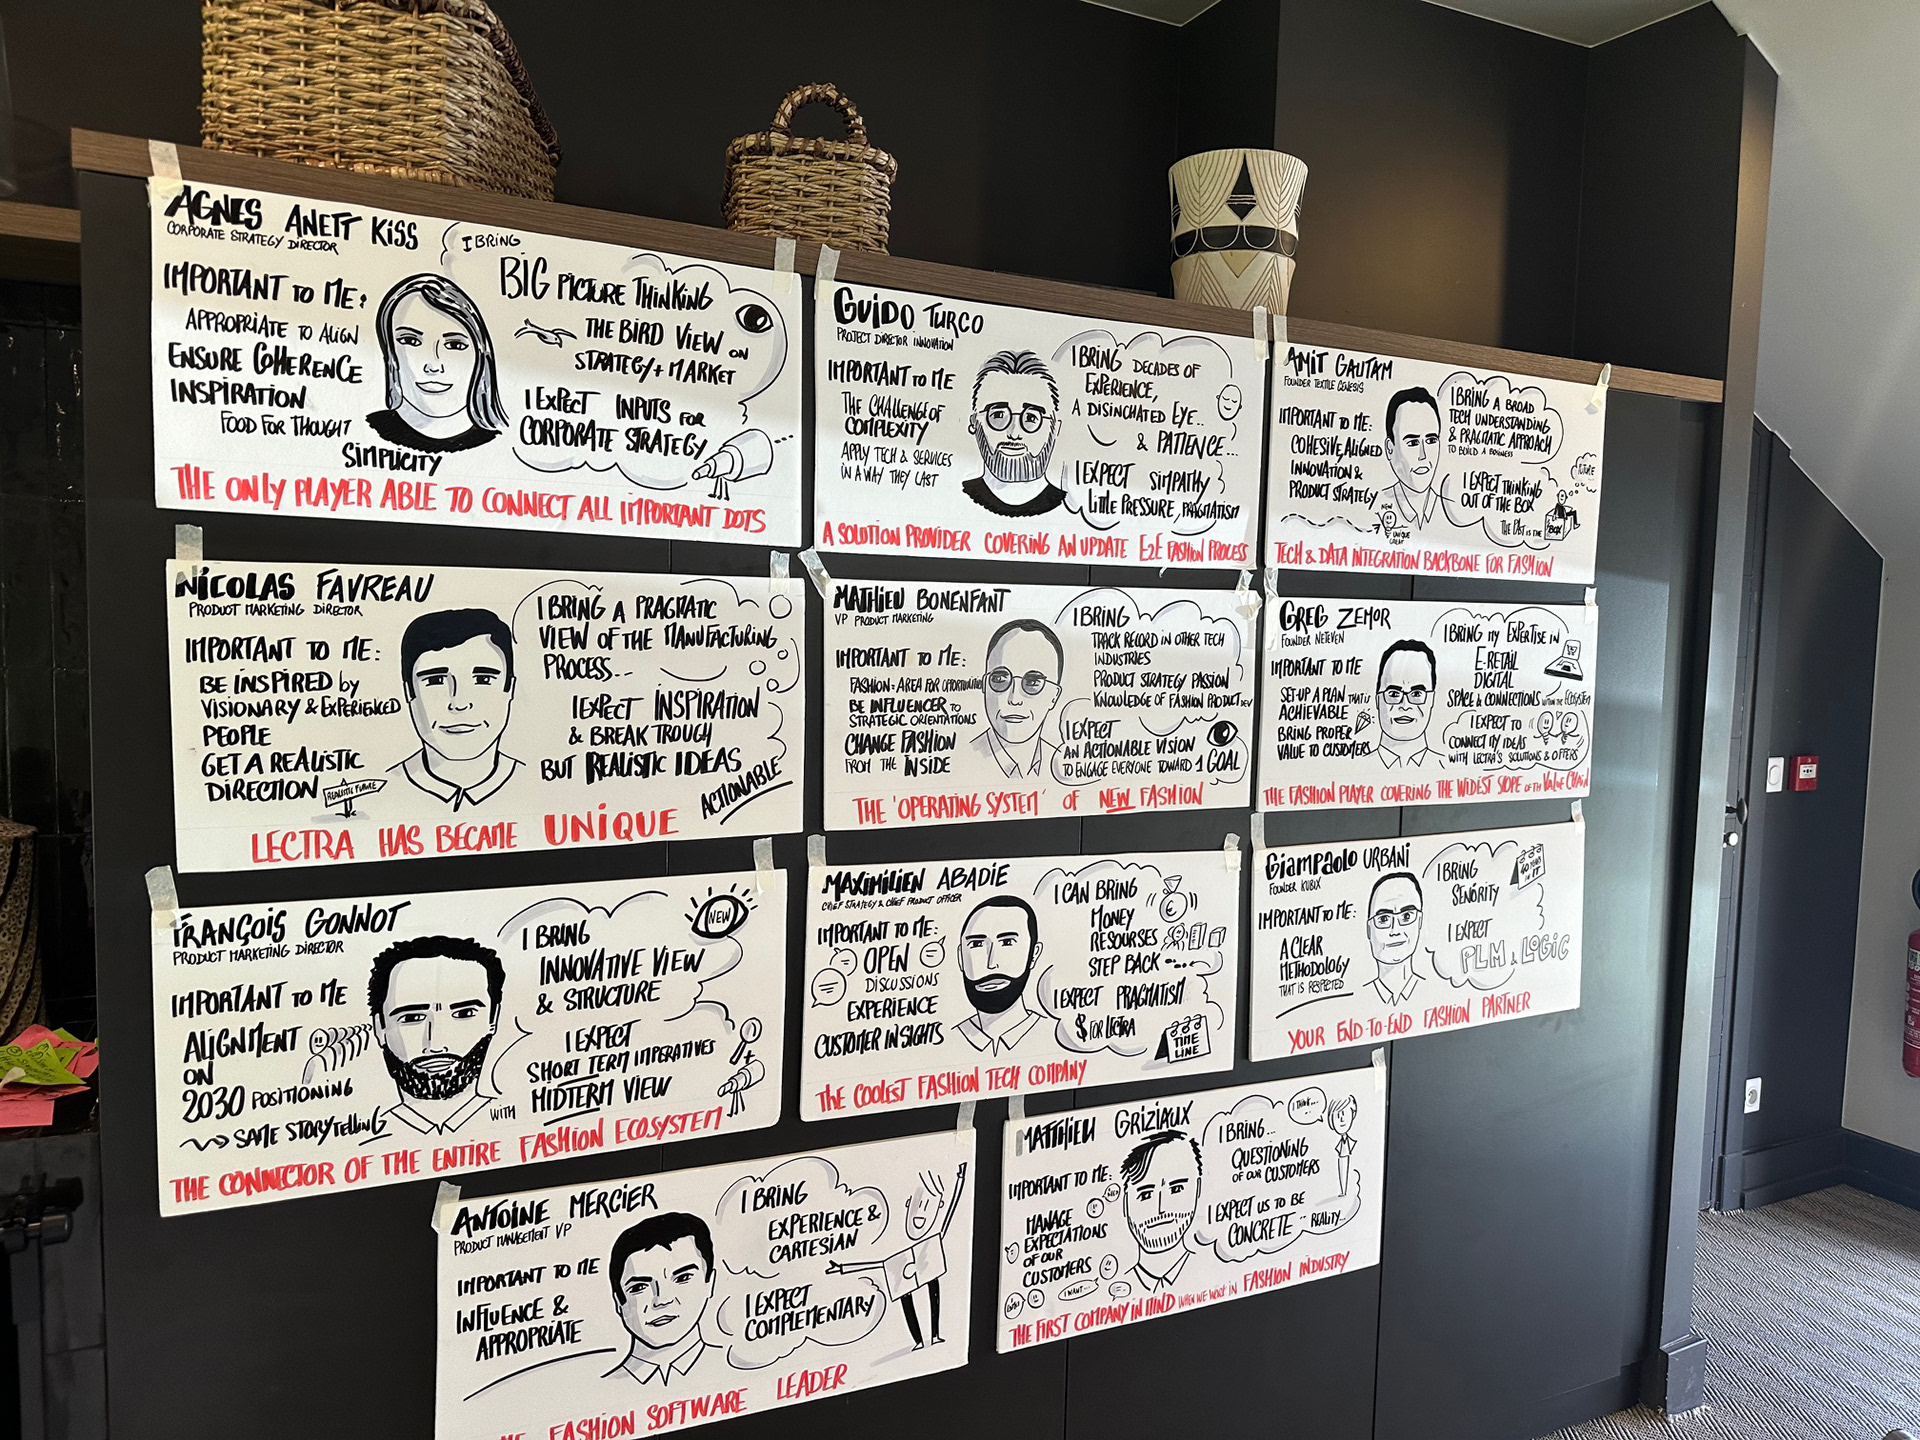 AGNES ANETT KISS
CORPORATE STRATEGY DIRECTOR
IMPORTANT TO ME:
APPROPRIATE TO ALIGN
ENSURE COHERENCE
INSPIRATION
FOOD FOR THOUGHT
SIMPLICITY
I BRING
BIG PICTURE THINKING
THE BIRD VIEW ON
STRATEGY + MARKET
I EXPECT INPUTS FOR
CORPORATE STRATEGY
THE ONLY PLAYER ABLE TO CONNECT ALL IMPORTANT DOTS
GUIDO TURCO
PROJECT DIRECTOR INNOVATION
IMPORTANT TO ME
THE CHALLENGE OF
COMPLEXITY
APPLY TECH & SERVICES
IN A WAY THEY LAST
I BRING DECADES OF
EXPERIENCE,
A DISINCHATED EYE..
& PATIENCE...
I EXPECT SIMPATHY
LITTLE PRESSURE, PRAGMATISM
A SOLUTION PROVIDER COVERING AN UPDATE E2E FASHION PROCESS
AMIT GAUTAM
FOUNDER TEXTILE GENESIS
IMPORTANT TO ME:
COHESIVE, ALIGNED
INNOVATION &
PRODUCT STRATEGY
NEW
UNIQUE
GREAT
I BRING A BROAD
TECH UNDERSTANDING
& PRAGMATIC APPROACH
TO BUILD A BUSINESS
I EXPECT THINKING
OUT OF THE BOX
THE PAST IS THE
BOX
FUTURE
TECH & DATA INTEGRATION BACKBONE FOR FASHION
NICOLAS FAVREAU
PRODUCT MARKETING DIRECTOR
IMPORTANT TO ME:
BE INSPIRED by
VISIONARY & EXPERIENCED
PEOPLE
GET A REALISTIC
DIRECTION
REALISTIC FUTURE
I BRING A PRAGMATIC
VIEW OF THE MANUFACTURING
PROCESS...
I EXPECT INSPIRATION
& BREAK TROUGH
BUT REALISTIC IDEAS
ACTIONABLE
LECTRA HAS BECAME UNIQUE
MATHIEU BONENFANT
VP PRODUCT MARKETING
IMPORTANT TO ME:
FASHION: AREA FOR OPPORTUNITIES
BE INFLUENCER TO
STRATEGIC ORIENTATIONS
CHANGE FASHION
FROM THE INSIDE
I BRING
TRACK RECORD IN OTHER TECH
INDUSTRIES
PRODUCT STRATEGY PASSION
KNOWLEDGE OF FASHION PRODUCT DEV
I EXPECT
AN ACTIONABLE VISION
TO ENGAGE EVERYONE TOWARD 1 GOAL
THE 'OPERATING SYSTEM' OF NEW FASHION
GREG ZEMOR
FOUNDER NETEVEN
IMPORTANT TO ME
SET-UP A PLAN THAT IS
ACHIEVABLE
BRING PROPER
VALUE TO CUSTOMERS
I BRING MY EXPERTISE IN
E-RETAIL
DIGITAL
SPACE & CONNECTIONS WITHIN THE ECOSYSTEM
I EXPECT TO
CONNECT MY IDEAS
WITH LECTRA'S SOLUTIONS & OFFERS
THE FASHION PLAYER COVERING THE WIDEST SLOPE OF TH VALUE CHAIN
FRANÇOIS GONNOT
PRODUCT MARKETING DIRECTOR
IMPORTANT TO ME
ALIGNMENT
ON
2030 POSITIONING
SAME STORYTELLING
I BRING
INNOVATIVE VIEW
& STRUCTURE
NEW
I EXPECT
SHORT TERM IMPERATIVES
WITH MIDTERM VIEW
THE CONNECTOR OF THE ENTIRE FASHION ECOSYSTEM
MAXIMILIEN ABADIE
CHIEF STRATEGY & CHIEF PRODUCT OFFICER
IMPORTANT TO ME:
OPEN
DISCUSSIONS
EXPERIENCE
CUSTOMER INSIGHTS
I CAN BRING
MONEY
RESOURSES
STEP BACK
I EXPECT PRAGMATISM
$ FOR LECTRA
TIME
LINE
THE COOLEST FASHION TECH COMPANY
GIAMPAOLO URBANI
FOUNDER KUBIX
IMPORTANT TO ME:
A CLEAR
METHODOLOGY
THAT IS RESPECTED
I BRING
SENIORITY
40 YEARS
IN IT
I EXPECT
PLM & LOGIC
YOUR END-TO-END FASHION PARTNER
ANTOINE MERCIER
PRODUCT MANAGEMENT VP
IMPORTANT TO ME
INFLUENCE &
APPROPRIATE
I BRING
EXPERIENCE &
CARTESIAN
I EXPECT
COMPLEMENTARY
FASHION SOFTWARE LEADER
MATTHIEU GRIZIAUX
IMPORTANT TO ME:
MANAGE
EXPECTATIONS
OF OUR
CUSTOMERS
I WANT...
I BRING...
QUESTIONING
OF OUR CUSTOMERS
I THINK...
I EXPECT US TO BE
CONCRETE... REALITY...
THE FIRST COMPANY IN MIND WHEN WE WORK IN FASHION INDUSTRY